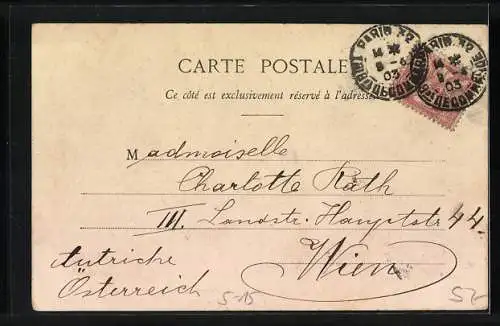 CARTE POSTALE
Ce côté est exclusivement réservé à l'adresse
PARIS 32
14
8 - 6
03
PARIS 32
14
8 - 6
03
Mademoiselle
Charlotte Rath
III. Landstr. Hauptstr 44.
Wien
Autriche
Österreich
5-15
52